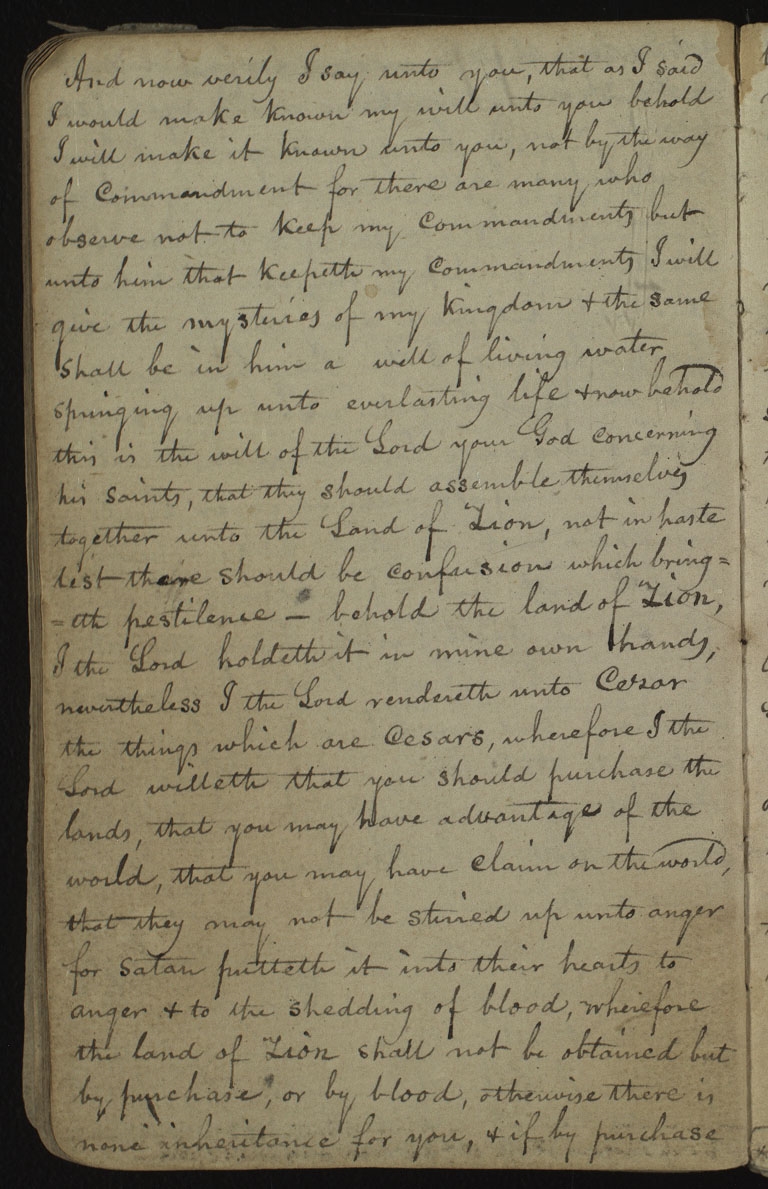 And now verily I say unto you, that as I said
I would make known my will unto you behold
I will make it known unto you, not by the way
of Commandment for there are many who
observe not to keep my commandments but
unto him that keepeth my commandments I will
give the mysteries of my kingdom & the same
shall be in him a well of living water
springing up unto everlasting life & now behold
this is the will of the Lord your God concerning
his saints, that they should assemble themselves
together unto the Land of Zion, not in haste
lest there should be confusion which bring=
=eth pestilence — behold the land of Zion,
I the Lord holdeth it in mine own hands,
nevertheless I the Lord rendereth unto Cezar
the things which are Cesars, wherefore I the
Lord willeth that you should purchase the
lands, that you may have advantage of the
world, that you may have claim on the world,
that they may not be stirred up unto anger
for satan putteth it into their hearts to
anger & to the shedding of blood, wherefore
the land of Zion shall not be obtained but
by purchase, or by blood, otherwise there is
none inheritance for you, & if by purchase